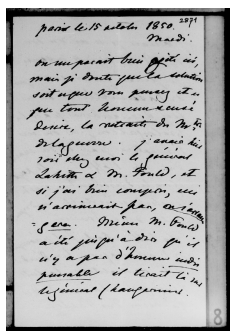 2871
paris le 15 octobre 1850.
Mardi.
on me parait bien
mais je doute que la solution
soit ce que vous pensez et ce
que tout homme sensé
desire, la retraite du Mtre
de la guerre. j'avais hier
soir chez moi le général
Lahitte & M. Fould, et
si j'ai bien compris, ils
n'arriveraient pas,
Même M. Fould
a été jusqu'à dire qu'il
n'y a pas d'homme indis
pensable il disait là
le général Changarnier.
8